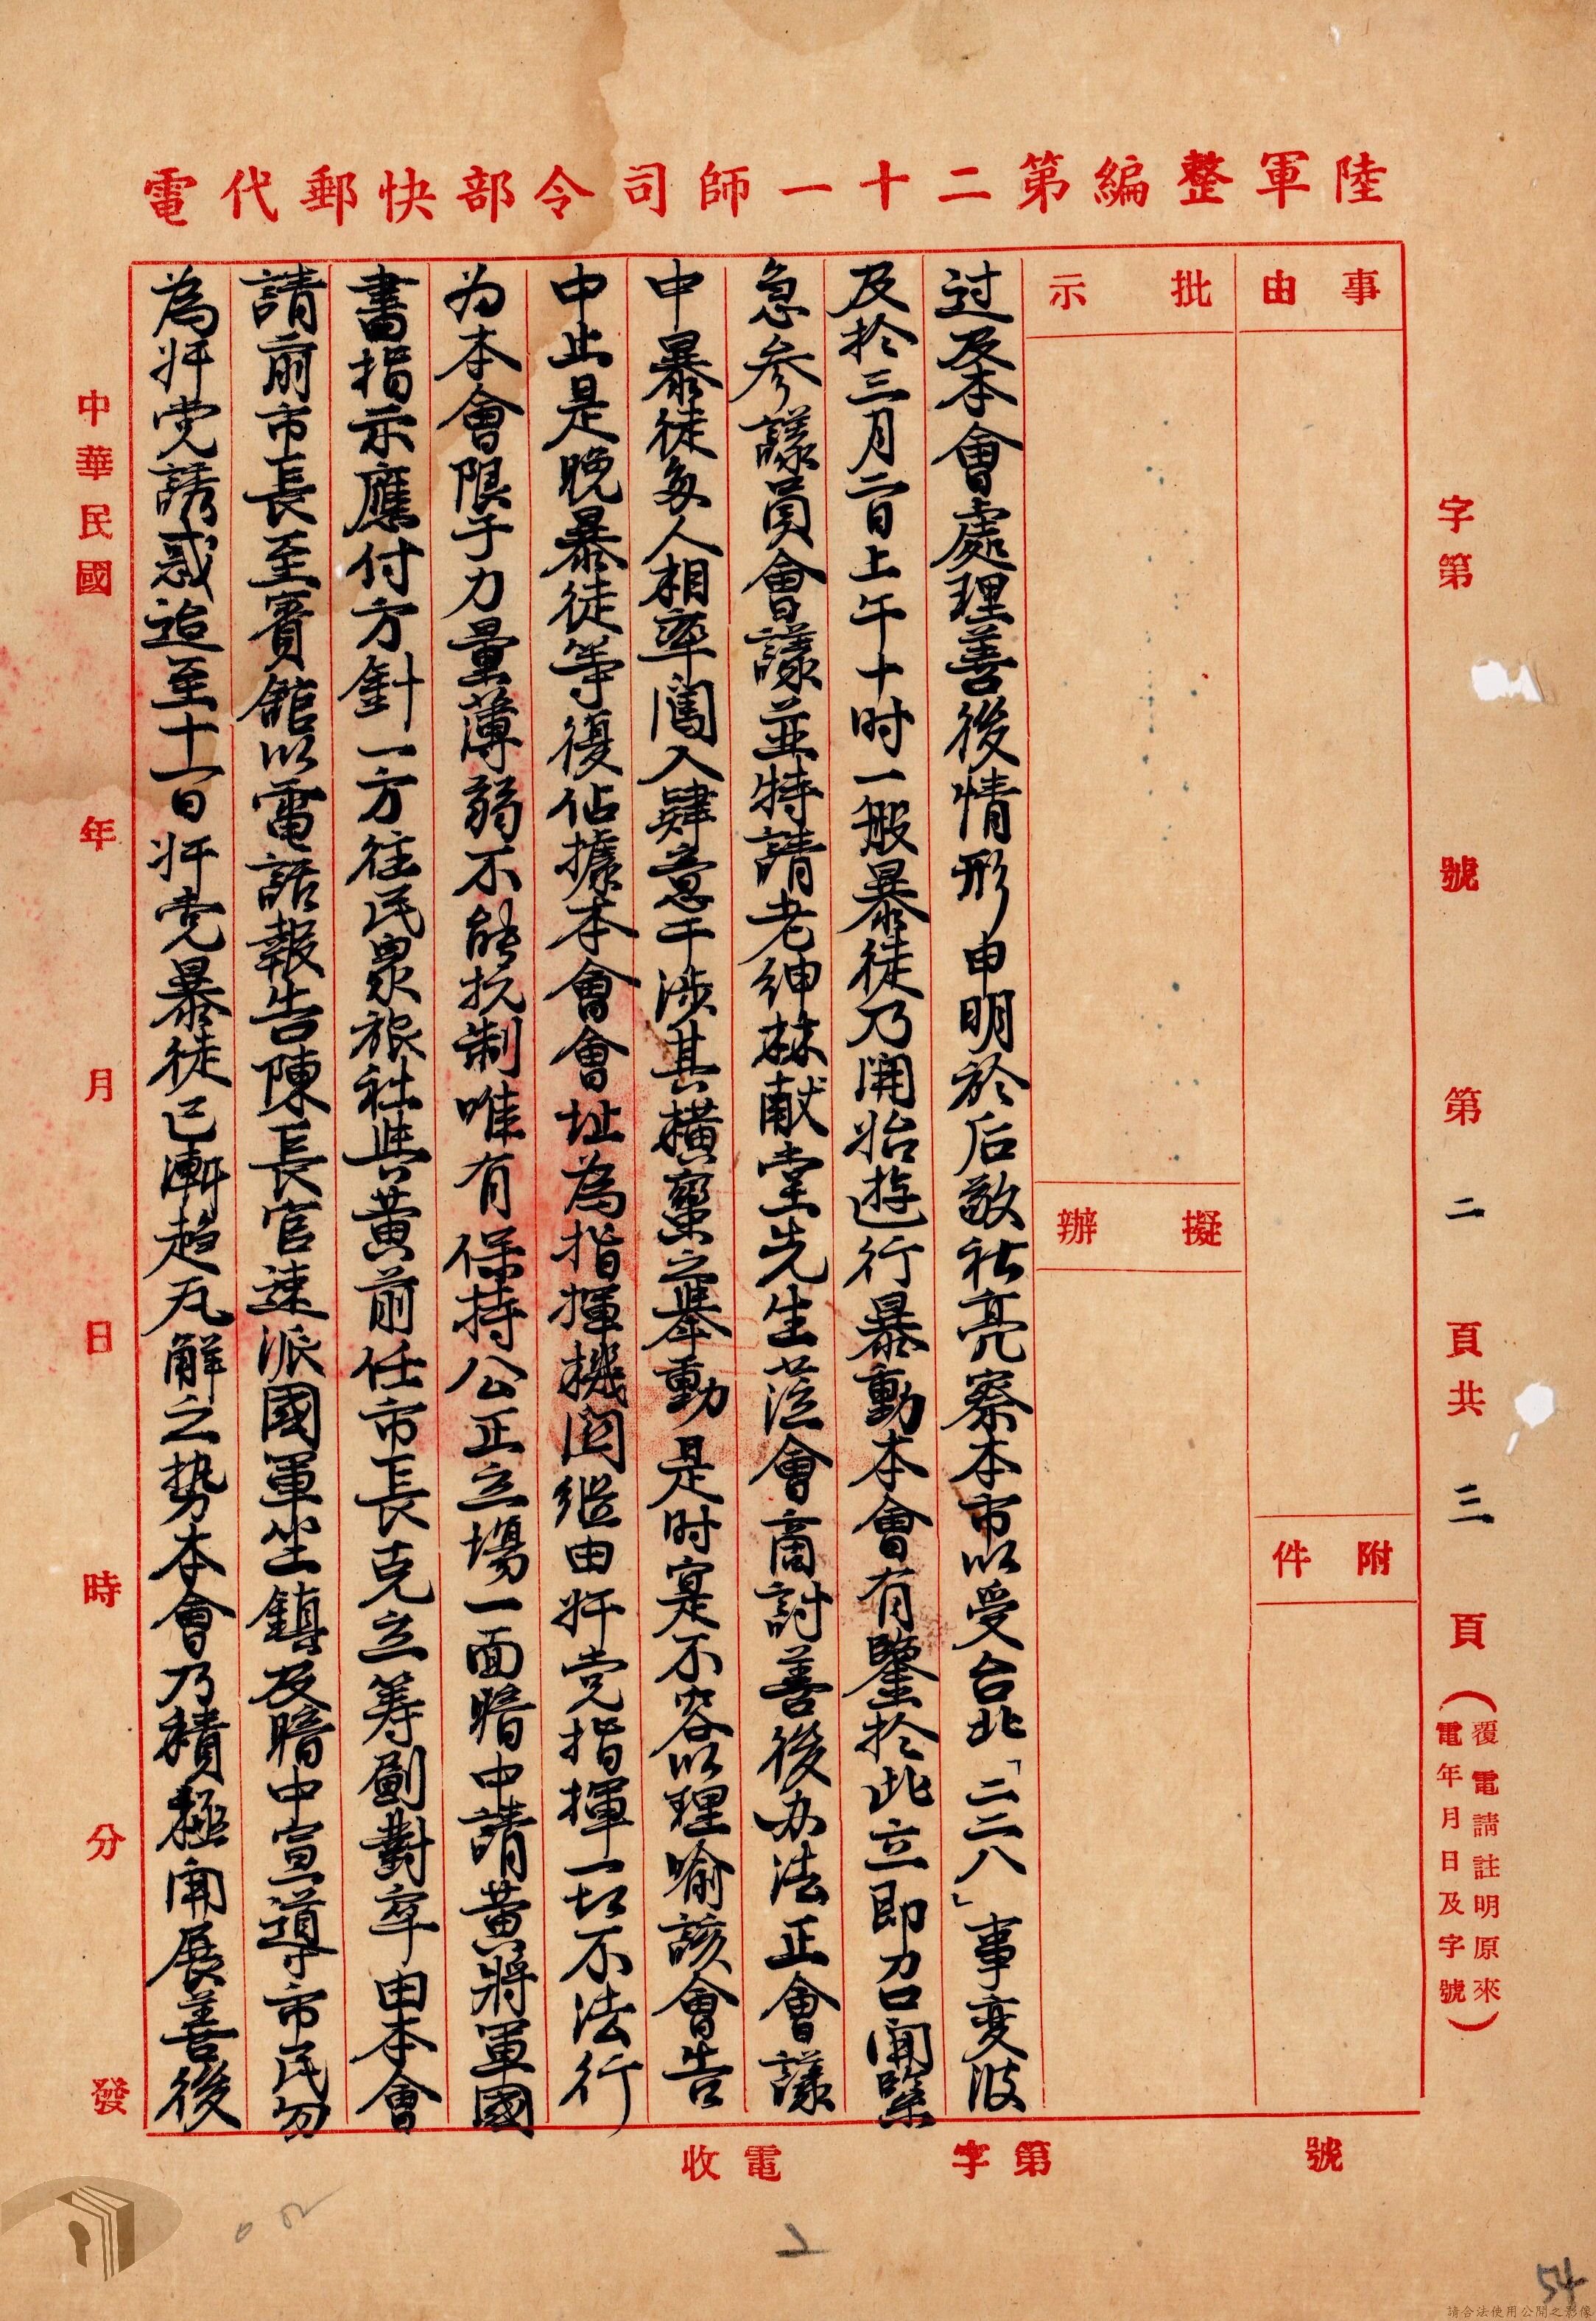 陸軍整編第二十一師司令部快郵代電
字第　號　第二頁共三頁（覆電請註明原來電年月日及字號）
事由
附件
批示
擬辦
过及本會處理善後情形申明於后敬祈亮察本市以受台北「二二八」事变波
及於三月二日上午十时一般暴徒乃開始遊行暴動本會有鑒於此立即召開緊
急參議員會議並特請老紳林献堂先生蒞會商討善後办法正會議
中暴徒多人相率闖入肆意干涉其橫蠻之舉動是时寔不容以理喻該會告
中止是晚暴徒等復佔據本會會址為指揮機関継由奸党指揮一切不法行
为本會限于力量薄弱不能抗制唯有保持公正立場一面暗中請黃將軍國
書指示應付方針一方往民眾旅社與黃前任市長克立籌劃對率由本會
請前市長至賓館以電話報告陳長官速派國軍坐鎮及暗中宣導市民勿
為奸党誘惑迨至十一日奸党暴徒已漸趋瓦解之势本會乃積極開展善後
中華民國　年　月　日　時　分　發
號　第字　電收
2
54
請合法使用公開之影像